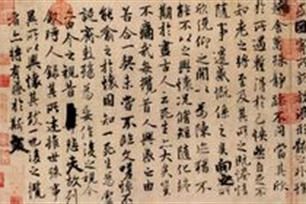 舍萬殊靜躁不同當其欣
於所遇蹔得於己怏然自足不
知老之將至及其所之既惓情
隨事遷感慨係之矣向之所
欣俛仰之閒以為陳迹猶不
能不以之興懷況脩短隨化終
期於盡古人云死生亦大矣豈
不痛哉每攬昔人興感之由
若合一契未嘗不臨文嗟悼不
能喻之於懷固知一死生為虛
誕齊彭殤為妄作後之視今
亦由今之視昔悲夫故列
敘時人錄其所述雖世殊事
異所以興懷其致一也後之攬
者亦將有感於斯文